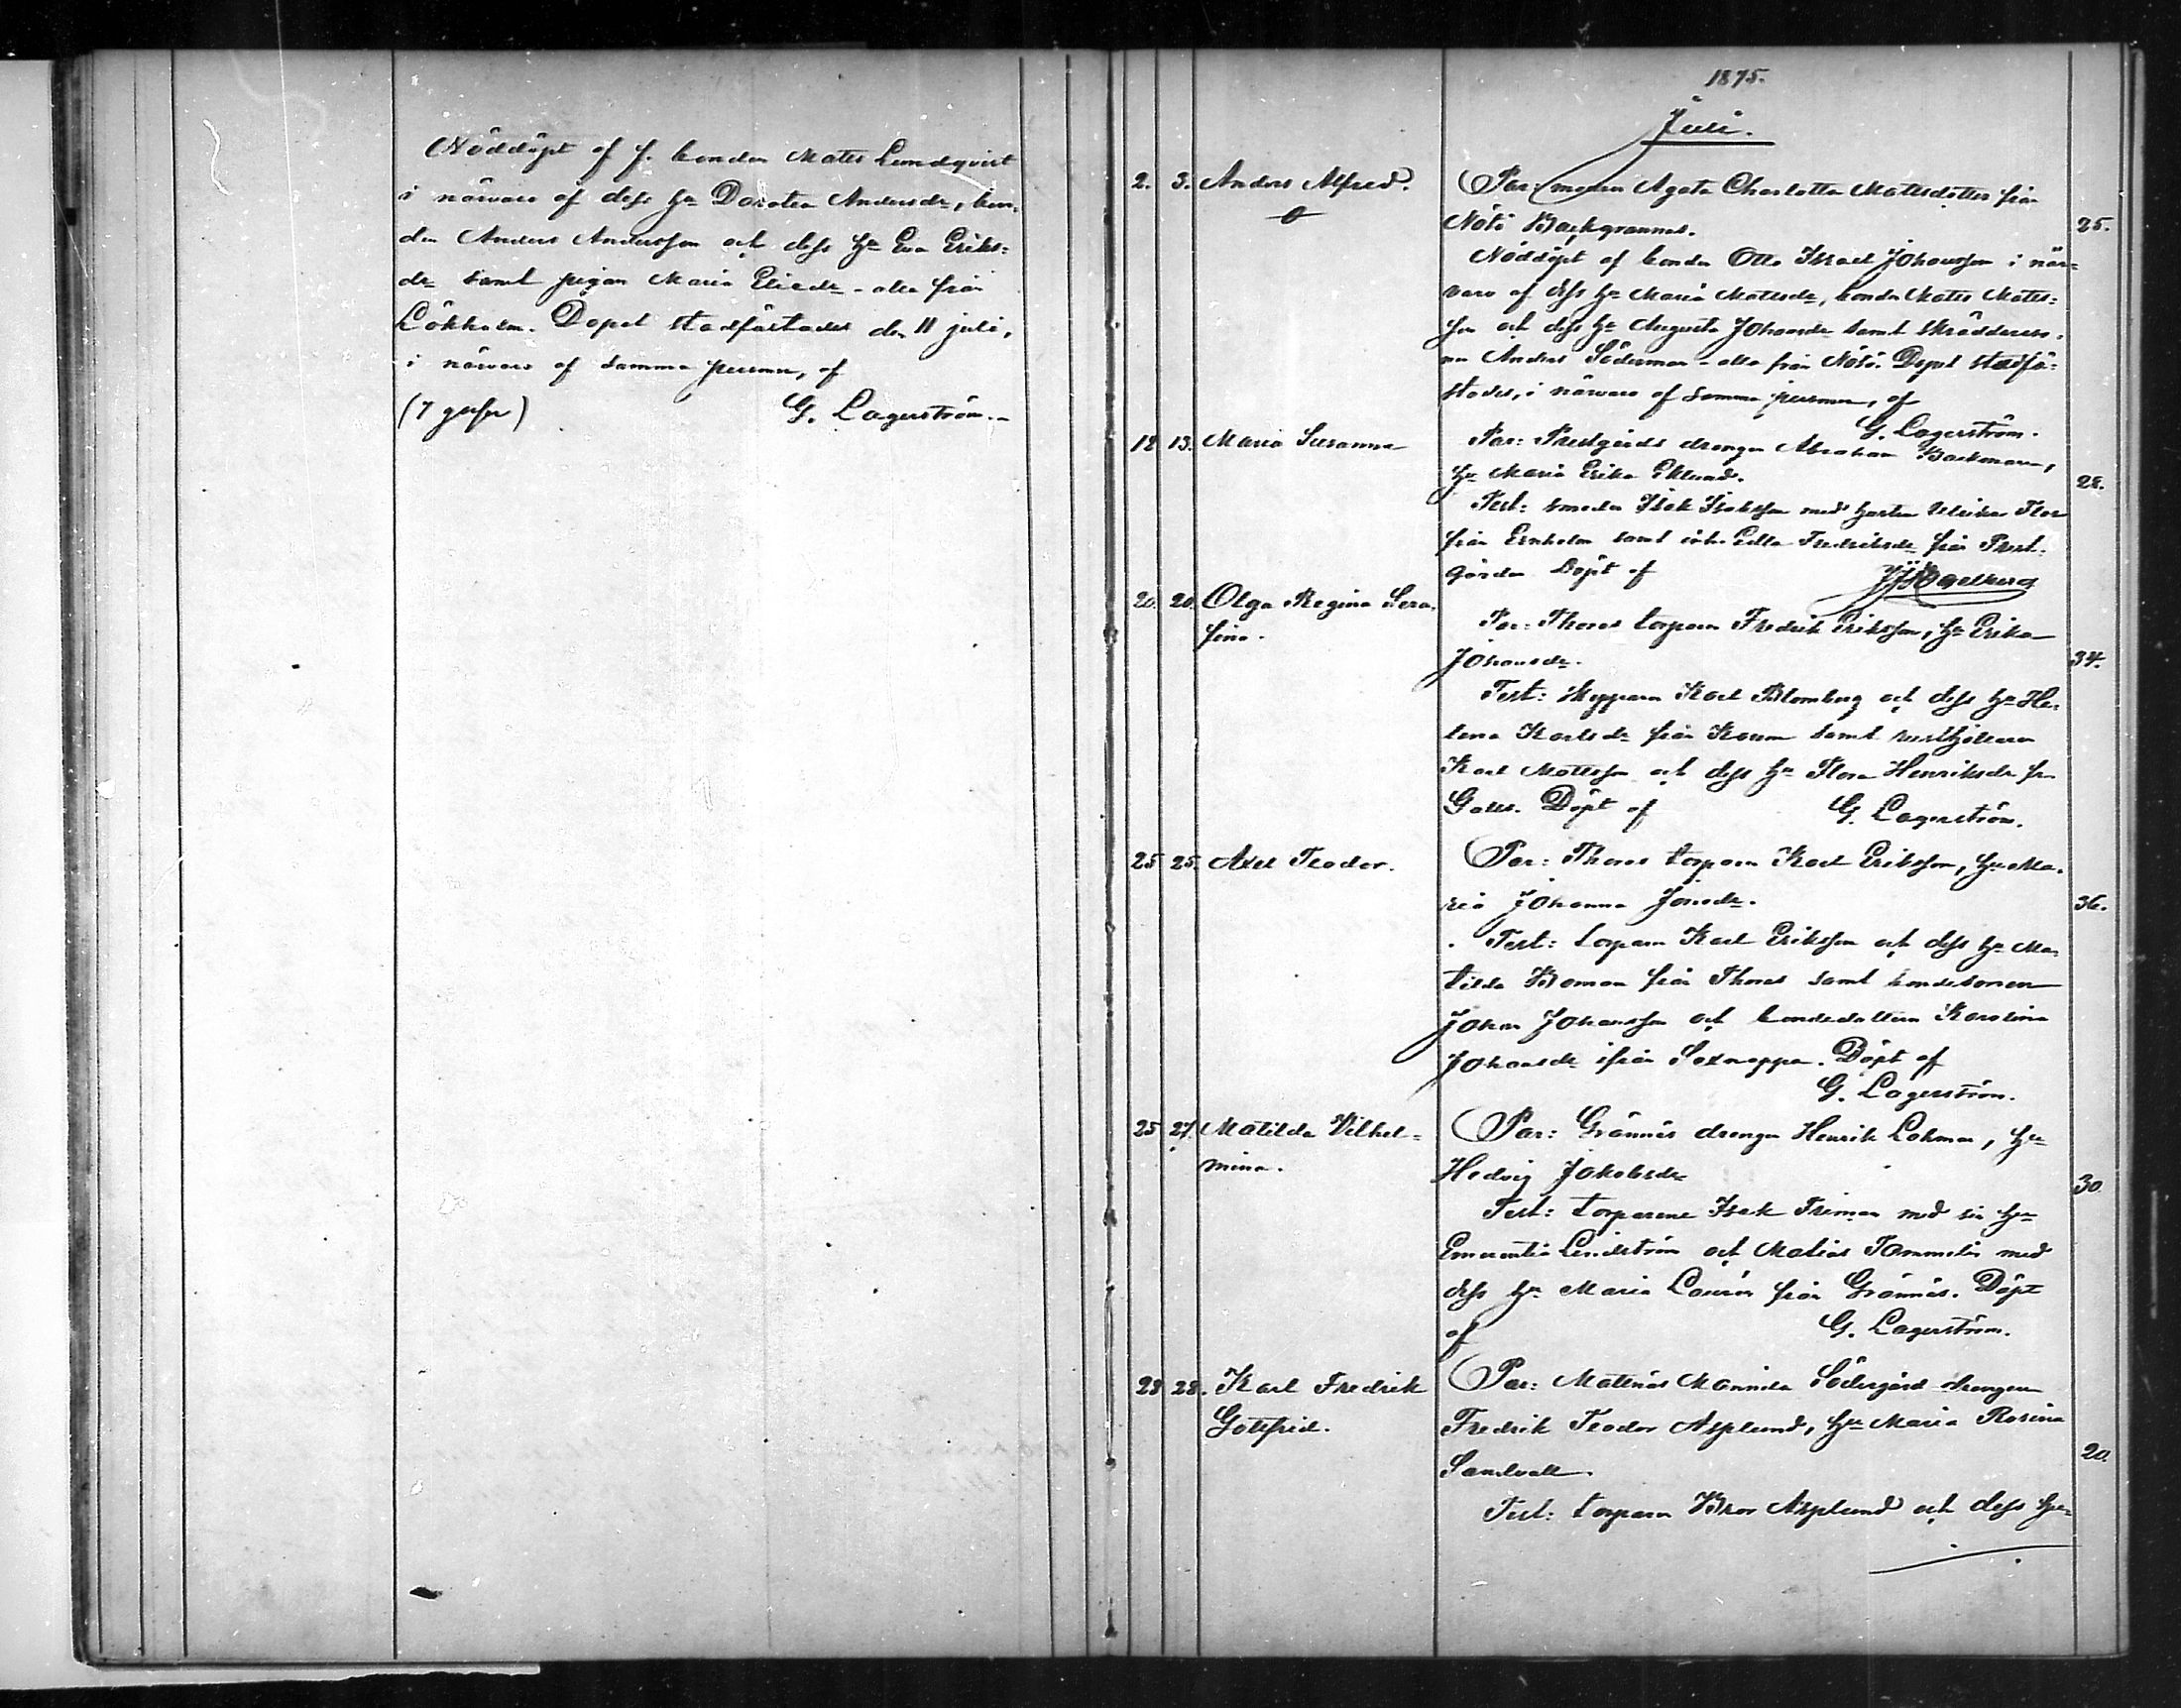 Nöddöpt af f. bonden Mats Lundqvist
i närvaro af dess hu Dorotea Andersdr, bon-
den Anders Andersson och dess hu Eva Eriks-
dr samt pigan Maria Eliedr - alla från
Lökholm. Dopet stadfästades den 11 juli,
i närvaro af samma personer, af
G. Lagerström.
1875.
Juli.
2. 3. Anders Alfred.
Par: Agata Charlotta Mattsdotter från
Nötö Backgrannas.
25.
Nöddöpt af bonden Otto Israel Johansson i när-
varo af dess hu Maria Mattsdr, bonden Mats Mats-
son och dess hu Augusta Johansdr samt
Anders Söderman - alla från Nötö. Dopet stadfä-
stades, i närvaro af samma personer, af
G. Lagerström.
12 13. Maria Susanna
Par: Prestgårds drengen Abraham Backman,
hu Maria Erika Eklund.
28.
Test: smeden Isak Isaksson med hustru Ulrika Flor
från samt Fredriksdr från Prest-
gården Döpt af
20. 20. Olga Regina Sera-
fina.
Par: Thoras torparen Fredrik Eriksson, hu Erika
Johansdr.
34.
Test: skepparen Karl Blomberg och dess hu He-
lena Karlsdr från samt
Karl Mattsson och dess hu Flora Henriksdr fr.
Galts. Döpt af G. Lagerström.
25 25. Axel Teodor.
Par: Thoras torparen Karl Eriksson, hu Ma-
ria Johanna
36.
Test: torparen Karl Eriksson och dess hu Ma-
tilda Boman från Thoras samt bondesonen
Johan Johansson och bondedottern Karolina
Johansdr ifrån Döpt af
G. Lagerström.
25 27. Matilda Vilhel-
mina.
Par: Grännäs drengen Henrik Lohman, hu
Hedvig Jakobsdr
30.
Test: torparene Isak Friman med sin hu
Lindström och Matias Tammelin med
dess hu Maria från Grännäs. Döpt
af G. Lagerström.
28 28. Karl Fredrik
Gottfrid.
Par: Mattnäs Södergård drengen
Fredrik Teodor Asplund, hu Maria Rosina
Sandvall.
20.
Test: torparen Asplund och dess hu